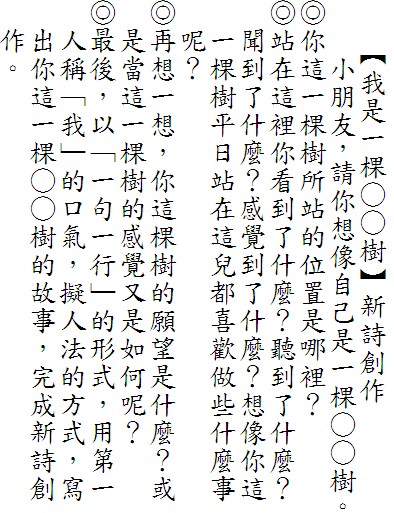 【我是一棵○○樹】新詩創作
小朋友，請你想像自己是一棵○○樹。
◎你這一棵樹所站的位置是哪裡？
◎站在這裡你看到了什麼？聽到了什麼？
聞到了什麼？感覺到了什麼？想像你這
一棵樹平日站在這兒都喜歡做些什麼事
呢？
◎再想一想，你這棵樹的願望是什麼？或
是當這一棵樹的感覺又是如何呢？
◎最後，以「一句一行」的形式，用第一
人稱「我」的口氣，擬人法的方式，寫
出你這一棵○○樹的故事，完成新詩創
作。